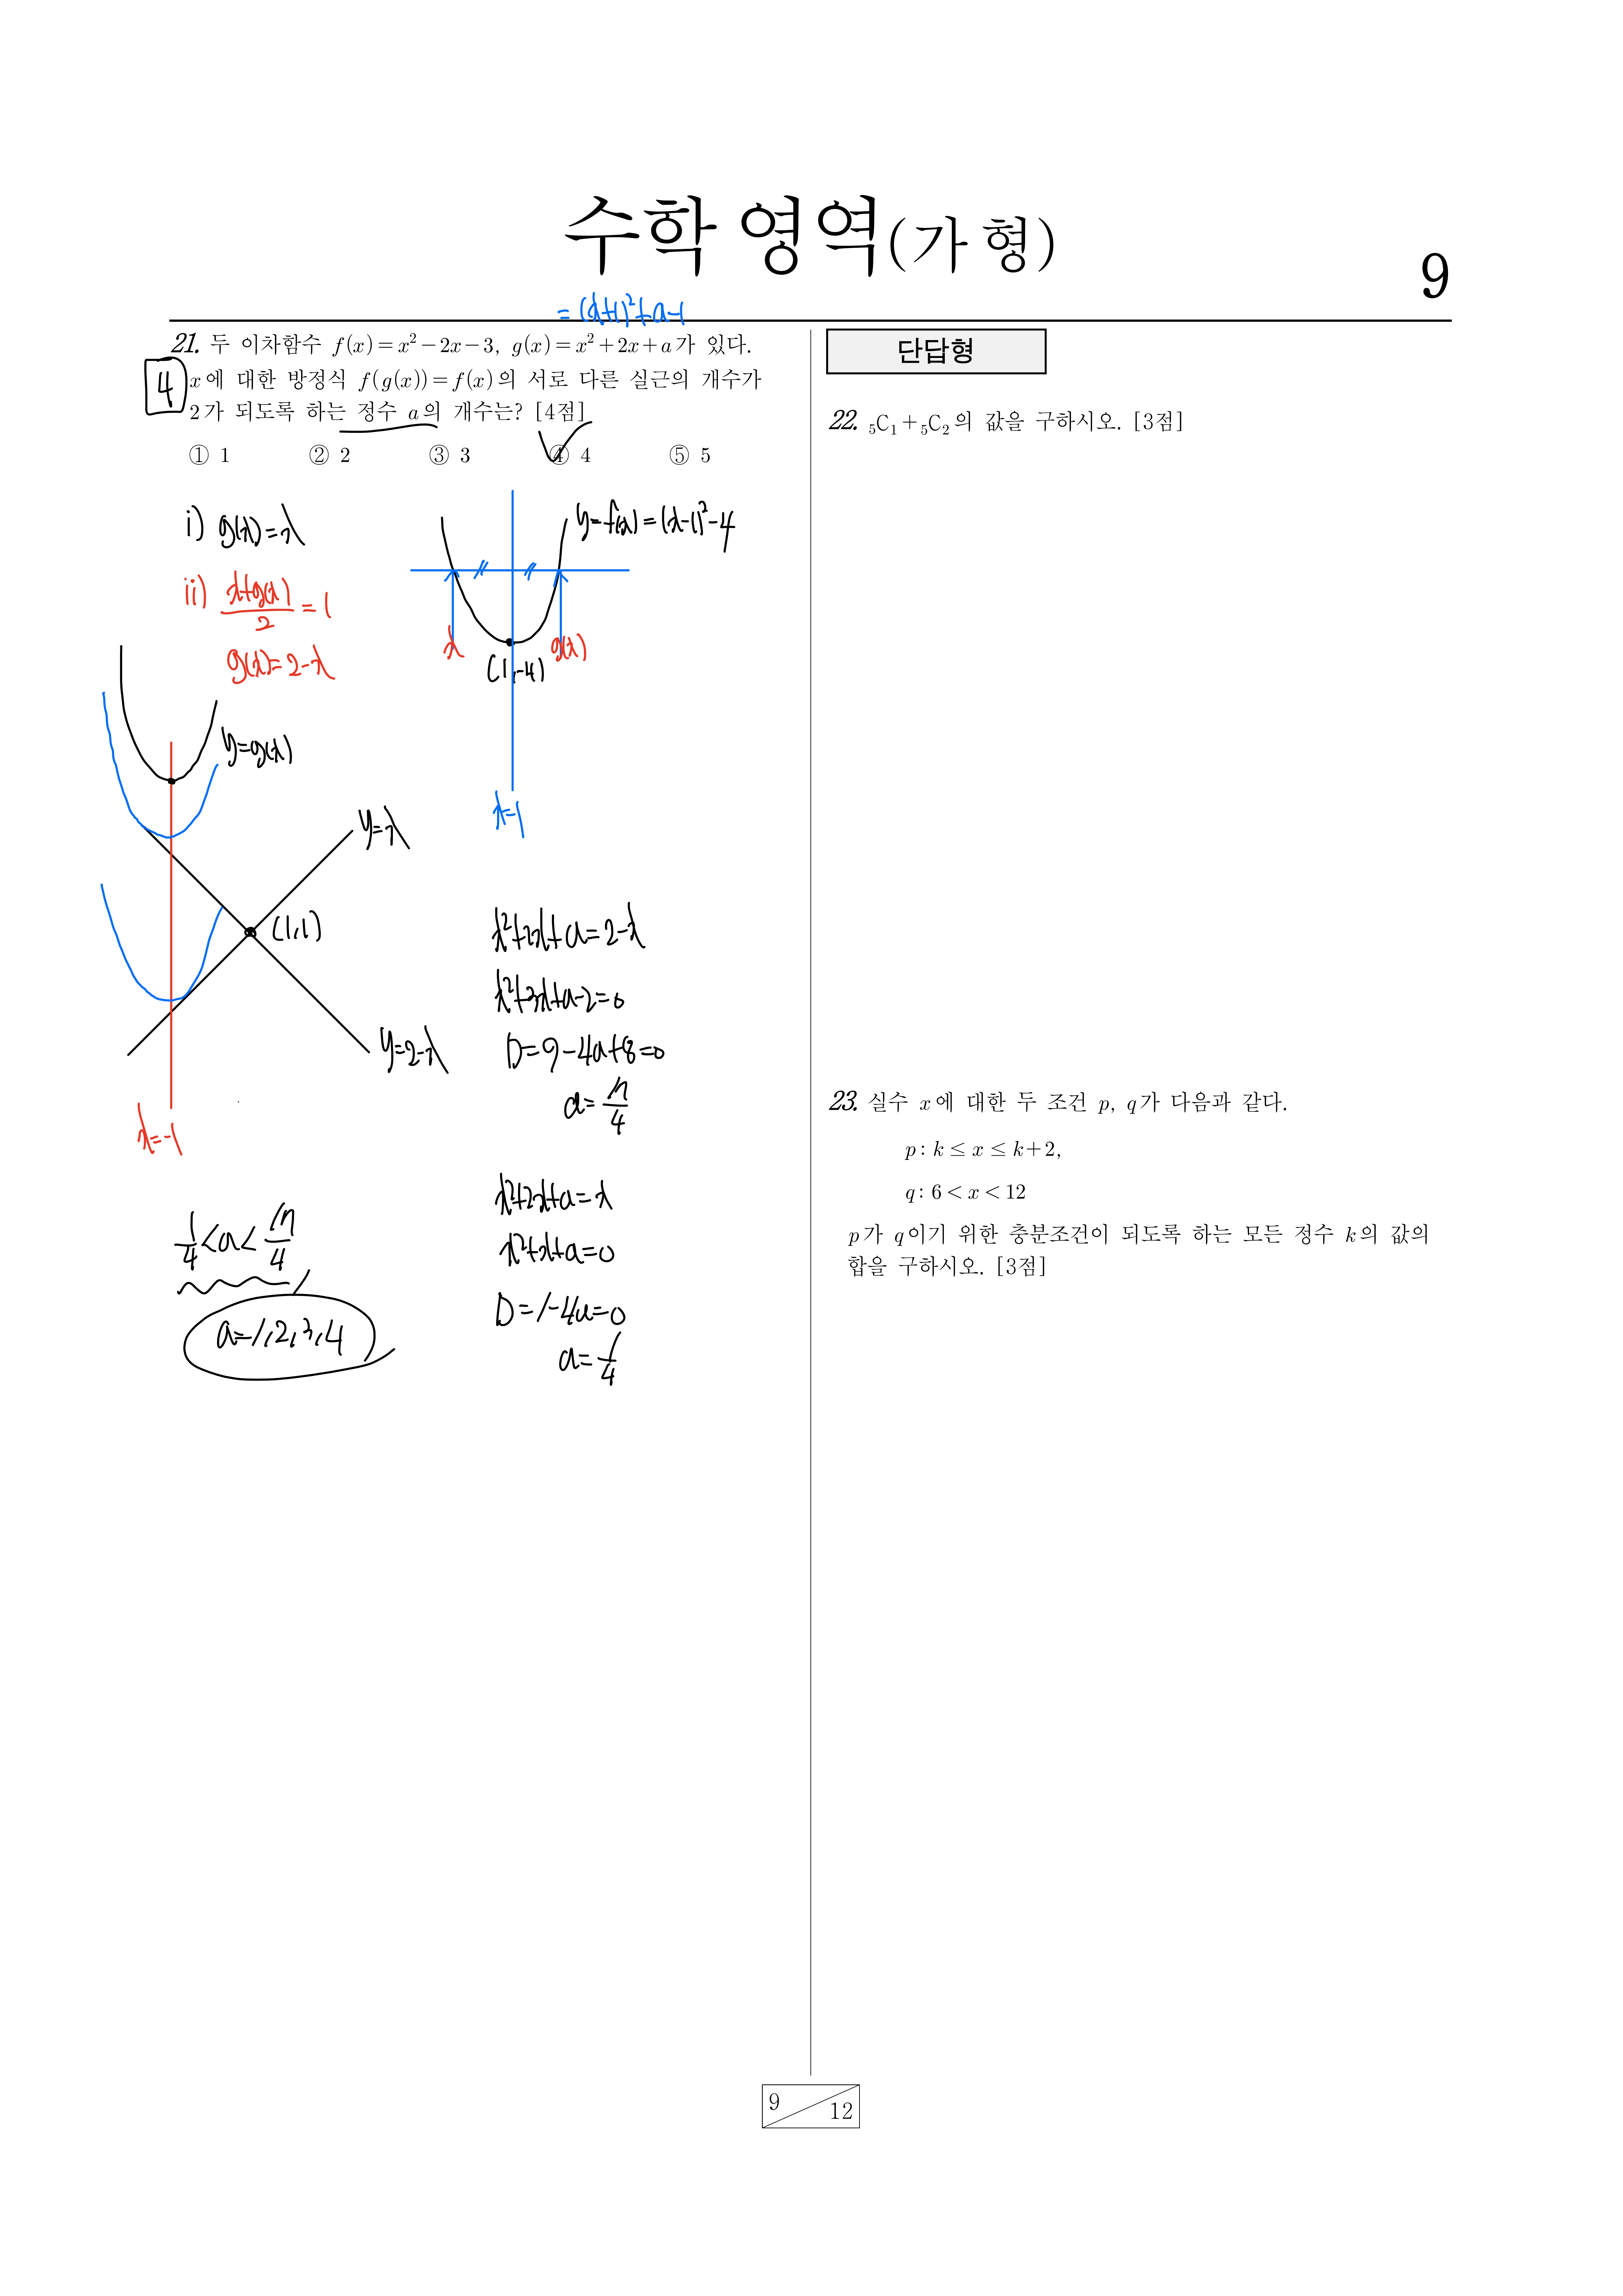 수학 영역(가 형)
9
= (x+1)²+a-1
21. 두 이차함수 f(x)=x²-2x-3, g(x)=x²+2x+a가 있다.
4
x에 대한 방정식 f(g(x))=f(x)의 서로 다른 실근의 개수가
2가 되도록 하는 정수 a의 개수는? [4점]
① 1 ② 2 ③ 3 ④ 4 ⑤ 5
i) g(x)=x
ii) (x+g(x))/2 = 1
g(x)=2-x
y=f(x)=(x-1)²-4
x
g(x)
(1,-4)
x=1
y=g(x)
y=x
(1,1)
y=2-x
x=-1
x²+2x+a=2-x
x²+3x+a-2=0
D=9-4a+8=0
a=17/4
x²+2x+a=x
x²+x+a=0
D=1-4a=0
a=1/4
1/4<a<17/4
a=1,2,3,4
단답형
22. ₅C₁+₅C₂의 값을 구하시오. [3점]
23. 실수 x에 대한 두 조건 p, q가 다음과 같다.
p: k ≤ x ≤ k+2,
q: 6 < x < 12
p가 q이기 위한 충분조건이 되도록 하는 모든 정수 k의 값의
합을 구하시오. [3점]
9
12